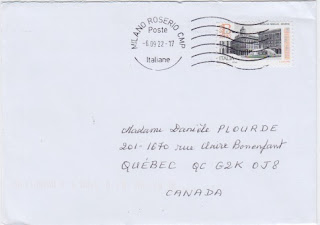 MILANO ROSERIO CMP
Poste
-6.09.22-17
Italiane
ITALIA
Madame Danièle PLOURDE
201-1870 rue Claire Bonenfant
QUÉBEC QC G2K 0J8
CANADA